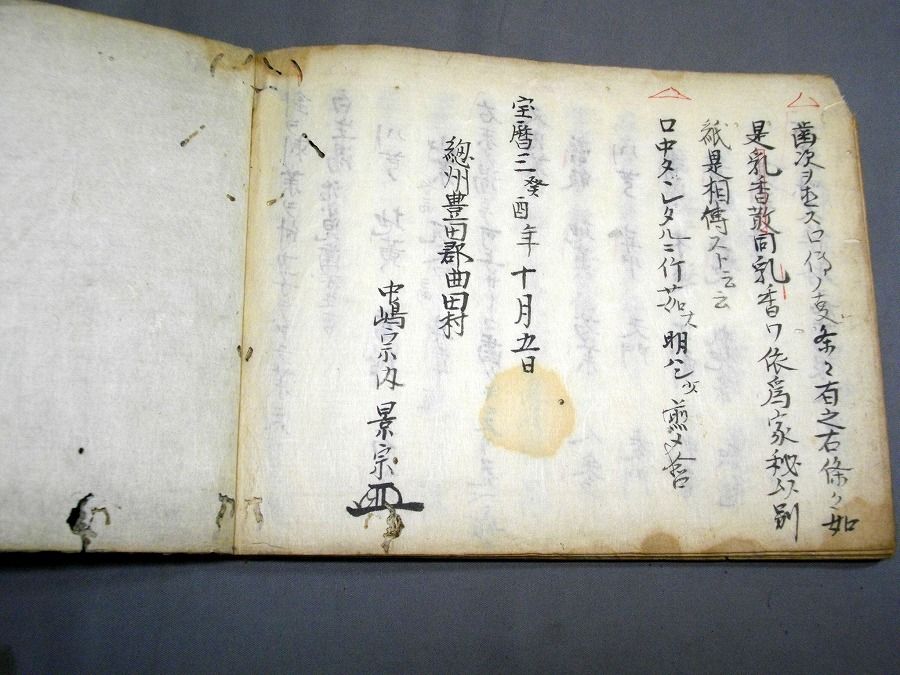 歯次ヲ出スロ傳ノ支条々有之右條々如
是乳香散向乳香ワ依爲家秘以別
紙是相傳スト云云
口中タヾンタルニ竹茹大明ハン少煎メ含
宝暦三癸酉年十月五日
總州豊田郡曲田村
中嶋宗内景宗